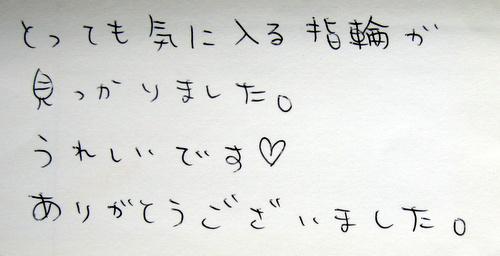 とっても気に入る指輪が
見つかりました。
うれしいです♡
ありがとうございました。